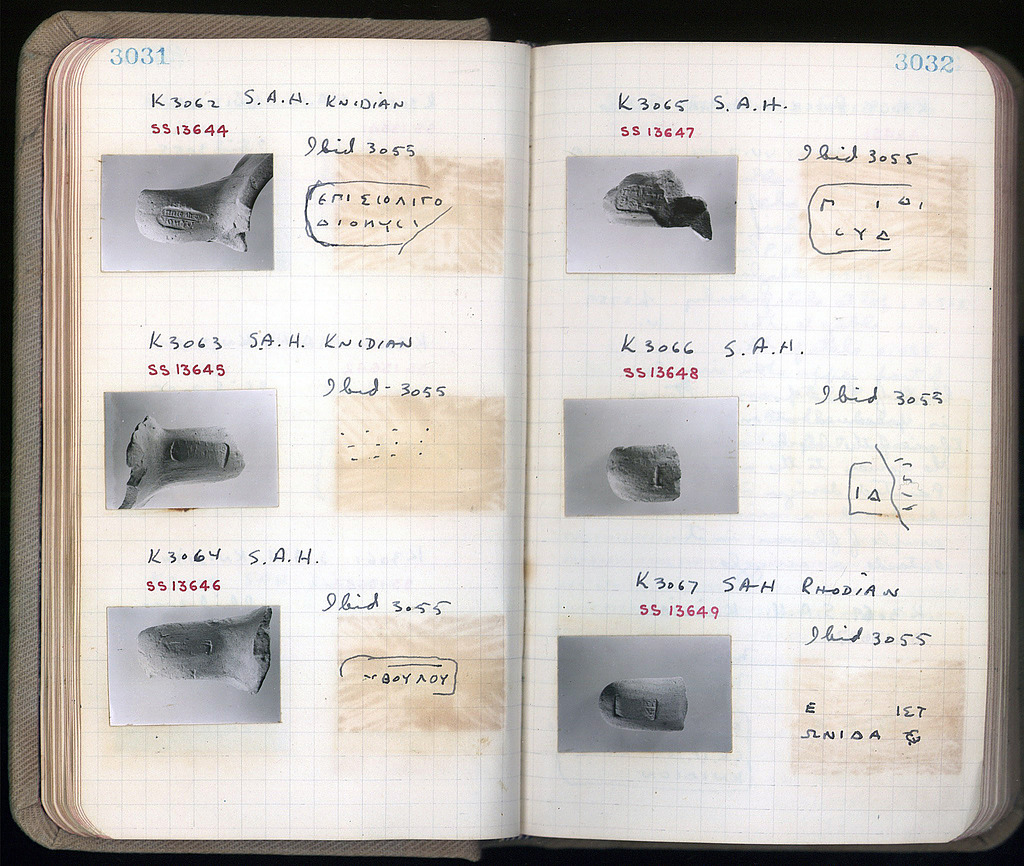 3031
K3062 S.A.H. KNIDIAN
SS13644
Ibid 3055
ΕΠΙ ΣΙΟΛΙΓΟ
ΔΙΟΝΥΣΙ
K3063 S.A.H. KNIDIAN
SS13645
Ibid - 3055
K3064 S.A.H.
SS13646
Ibid 3055
ΒΟΥΛΟΥ
3032
K3065 S.A.H.
SS13647
Ibid 3055
Π Ι ΔΙ
ΥΔ
K3066 S.A.H.
SS13648
Ibid 3055
ΙΔ
K3067 SAH RHODIAN
SS 13649
Ibid 3055
Ε ΙΣΤ
ΩΝΙΔΑ